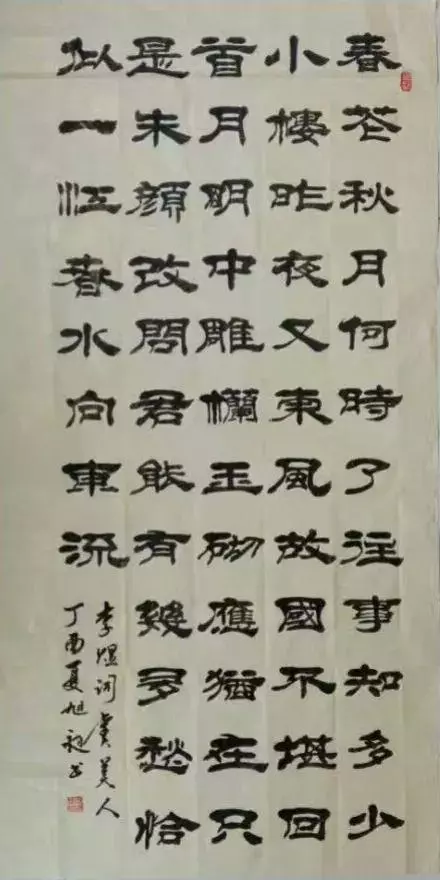 春花秋月何時了往事知多少
小樓昨夜又東風故國不堪回
首月明中雕欄玉砌應猶在只
是朱顔改問君能有幾多愁恰
似一江春水向東流
李煜词虞美人
丁酉夏旭书